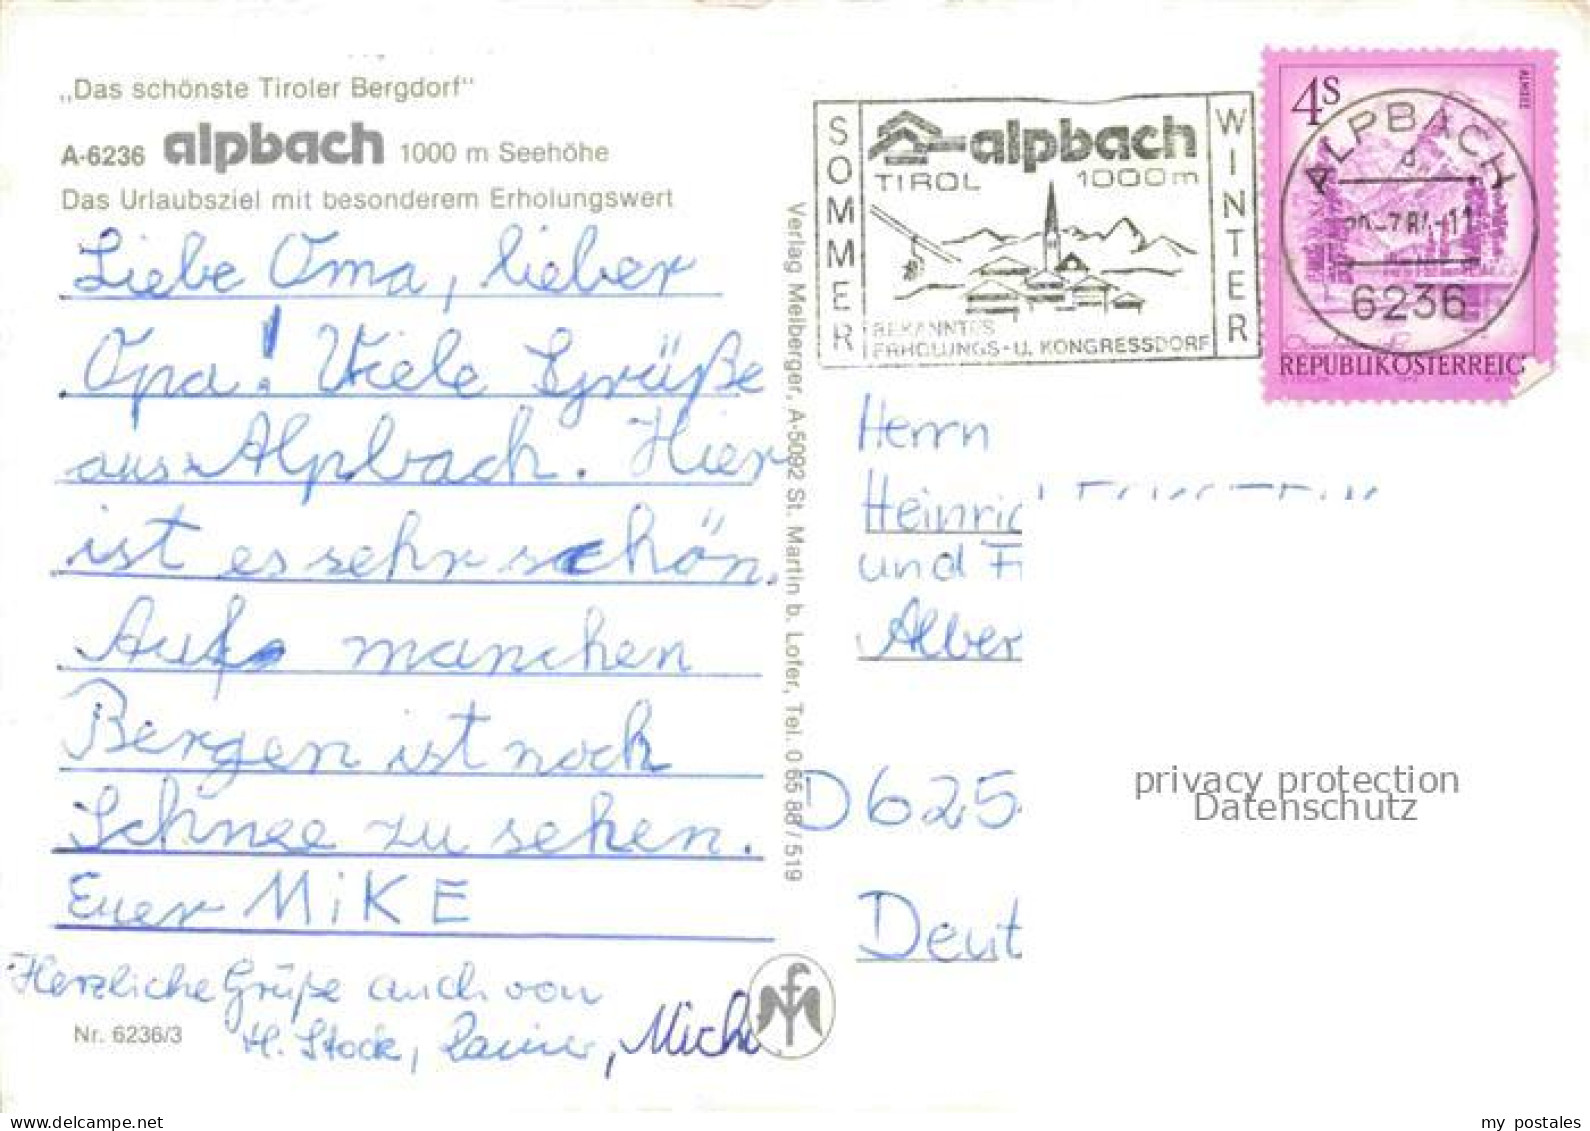 „Das schönste Tiroler Bergdorf"
A-6236 alpbach 1000 m Seehöhe
Das Urlaubsziel mit besonderem Erholungswert
Liebe Oma, lieber
Opa! Viele Grüße
aus Alpbach. Hier
ist es sehr schön.
Auf manchen
Bergen ist noch
Schnee zu sehen.
Euer MiKE
Herzliche Grüße auch von
H. Stock, Rainer, Mich
Nr. 6236/3
Verlag Melberger, A-5092 St. Martin b. Lofer, Tel. 0 65 88 / 519
SOMMER
alpbach
TIROL 1000m
BEKANNTES
ERHOLUNGS- U. KONGRESSDORF
WINTER
4S
ALMSEE
REPUBLIK ÖSTERREIC
ALPBACH
d
-7.84-11
6236
Herrn
Heinric
und F
Alber
D 625
Deut
privacy protection
Datenschutz
my postales